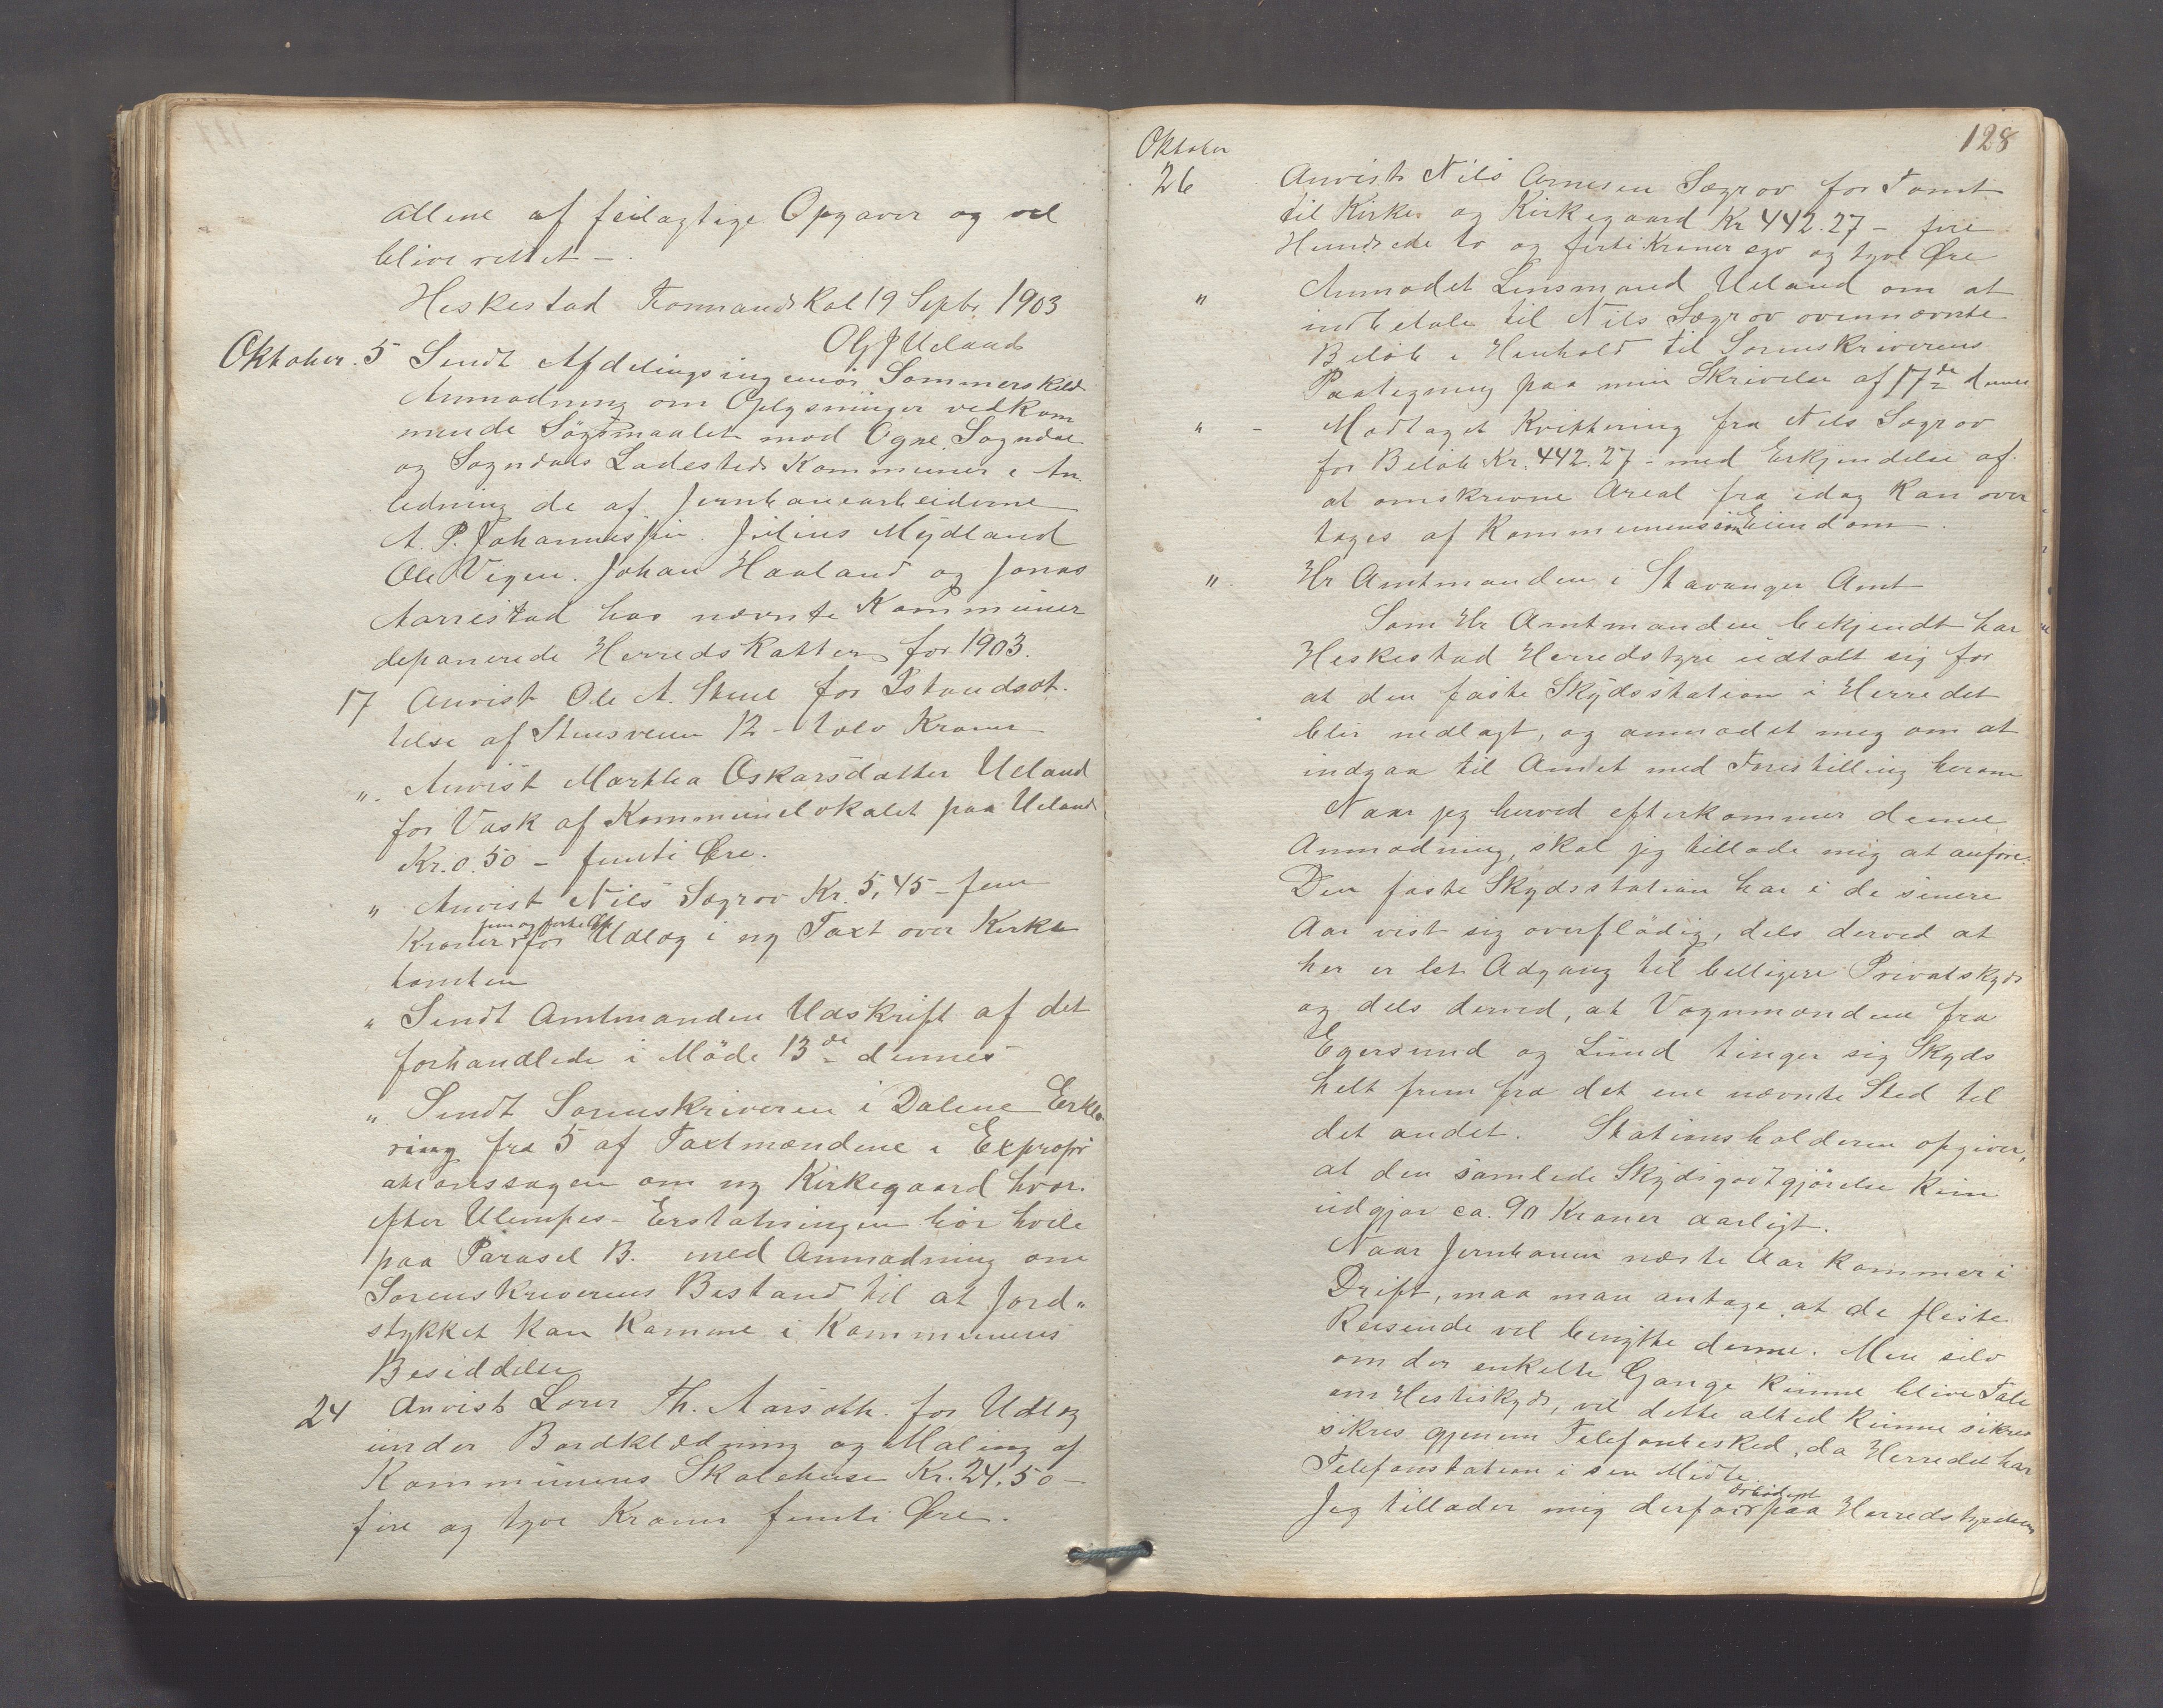 allene af feilagtige Opgaver og vil
blive rettet –
Heskestad Formandskab 19 Septbr 1903
Ol J Ueland
Oktober. 5 Sendt Afdelingsingeniør Sommerskild
Anmodning om Oplysninger vedkom
mende Søgsmaalet mod Ogne Sogndal
og Sogndals Ladesteds Kommuner i An
ledning de af Jernbanearbeiderne
A. P. Johannessen. Julius Mydland
Ole Vegen. Johan Haaland og Jonas
Aarrestad hos nævnte Kommuner
deponerede Herredskatter for 1903.
17 Anvist Ole A. Stene for Istandsæt-
telse af Stensveien 12 – tolv Kroner
". Anvist Martha Oskarsdatter Ueland
for Vask af Kommunelokalet paa Ueland
Kr. 0.50 – femti Øre.
" Anvist Nils Sægrov Kr. 5,45 – fem
Kroner fem og firti Øre for Udlæg i ny Taxt over Kirke
tomten
" Sendt Amtmanden Udskrift af det
forhandlede i Møde 13de dennes
" Sendt Sorenskriveren i Dalene Erklæ
ring fra 5 af Taxtmændene i Expropri
ationssagen om ny Kirkegaard hvor-
efter Ulempes-Erstatningen bør hvile
paa Parasel B. med Anmodning om
Sorenskriverens Bistand til at Jord-
stykket kan komme i Kommunens
Besiddelse
24 Anvist Lærer Th. Aarsoth. for Udlæg
under Bordklædning og Maling af
Kommunens Skolehuse Kr. 24.50 –
fire og tyve Kroner femti Øre.
128
Oktober
26 Anvist Nils Arnesen Sægrov for Tomt
til Kirke og Kirkegaard Kr 442.27 – fire
Hundrede to og firti Kroner syv og tyve Øre
" Anmodet Lensmand Ueland om at
indbetale til Nils Sægrov ovennævnte
Beløb i Henhold til Sorenskriverens
Paategning paa min Skrivelse af 17de dennes
" – Modtaget Kvittering fra Nils Sægrov
for Beløb Kr. 442.27 – med Erkjendelse af
at omskrevne Areal fra idag kan over
tages af Kommunen som Eiendom.
" Hr Amtmanden i Stavanger Amt
Som Hr Amtmanden bekjendt har
Heskestad Herredstyre udtalt sig for
at den faste Skydsstation i Herredet
blir nedlagt, og anmodet mig om at
indgaa til Amtet med Forestilling herom
Naar jeg herved efterkommer denne
Anmodning, skal jeg tillade mig at anføre:
Den faste Skydsstation har i de senere
Aar vist sig overflødig, dels derved at
her er let Adgang til billigere Privatskyds
og dels derved, at Vognmændene fra
Egersund og Lund tinger sig Skyds
helt frem fra det ene nævnte Sted til
det andet. Stationsholderen opgiver,
at den samlede Skydsgodtgjørelse kun
udgjør ca. 90 Kroner aarligt.
Naar Jernbanen næste Aar kommer i
Drift, maa man antage, at de fleste
Reisende vil benytte denne. Men selv
om der enkelte Gange kunne blive Tale
om Hesteskyds, vil dette altid kunne sikres
sikres gjenem Telefonbesked, da Herredet har
Telefonstation i sin Midte.
Jeg tillader mig derfor ærbødigst paa Herredstyrelsens